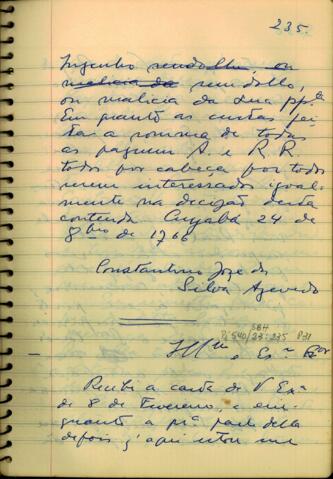 235.
Ingenho rendolho, ou
malicia da rendolho,
ou malicia da sua pp.la
Em quanto as custas fei-
tas a somma de todas
as paguem A. e R.R.
todos por cabeça por todos
serem interessados igual-
mente na decizão desta
contenda Cuyabá 24 de
8bro de 1766
Constantino Joze da
Silva Azevedo
SBH
Pi 540/23:235 P31
Illmo e Exmo Snr
Recebi a carta de V Exa
de 8 de Fevereiro, e em-
quanto a pra parte della
depois q' aqui estou me